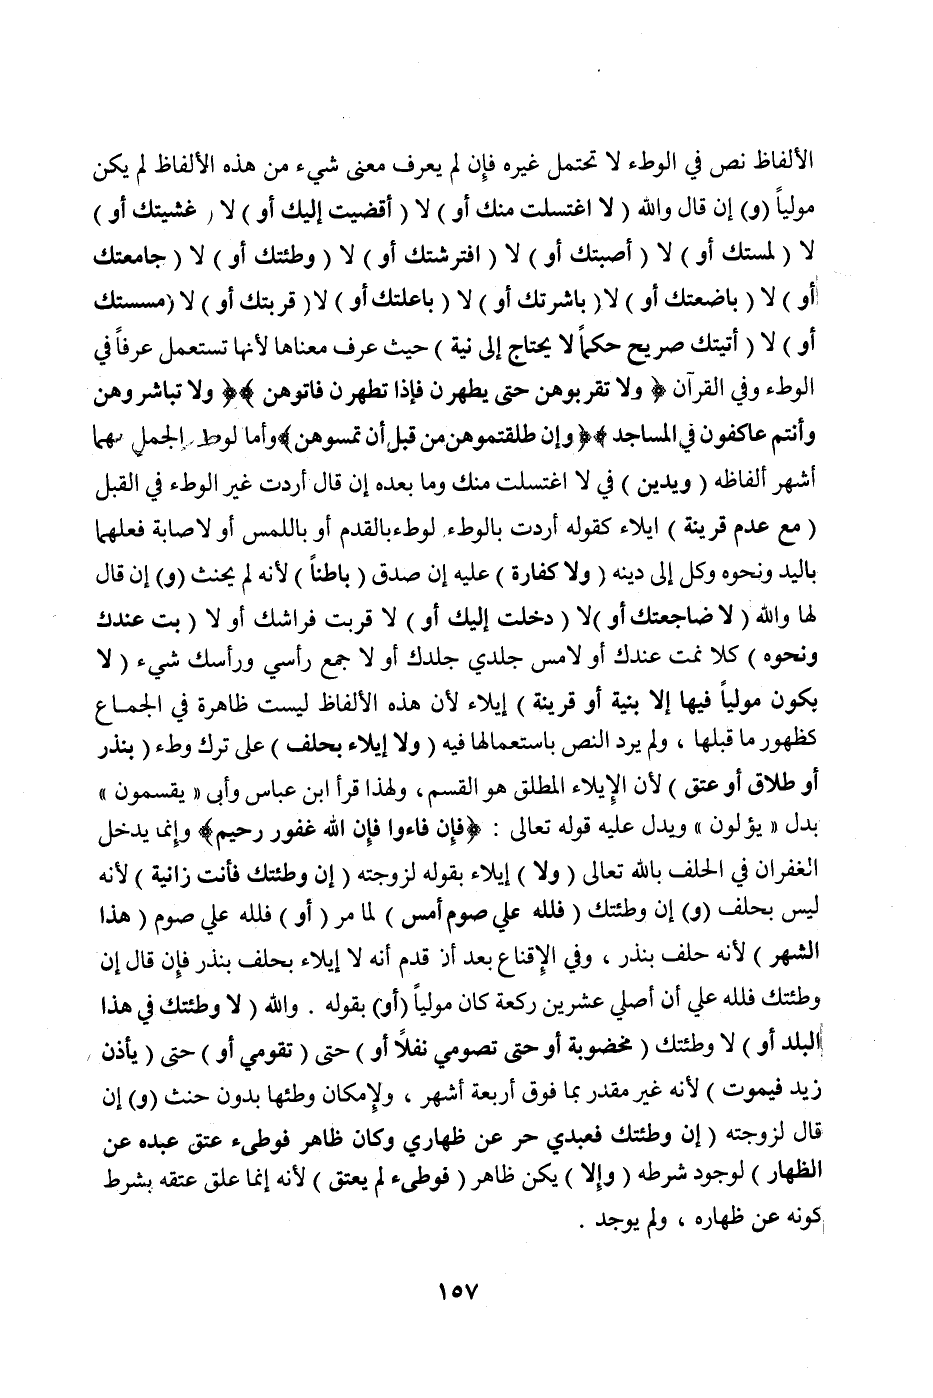 الألفاظ نص في الوطء لا تحتمل غيره فإن لم يعرف معنى شيء من هذه الألفاظ لم يكن
مولياً (و) إن قال والله ( لا اغتسلت منك أو ) لا ( أقضيت إليك أو ) لا ( غشيتك أو )
لا ( لمستك أو ) لا ( أصبتك أو ) لا ( افترشتك أو ) لا ( وطئتك أو ) لا ( جامعتك
أو ) لا ( باضعتك أو ) لا ( باشرتك أو ) لا ( باعلتك أو ) لا ( قربتك أو ) لا ( مسستك
أو ) لا ( أتيتك صريح حكماً لا يحتاج إلى نية ) حيث عرف معناها لأنها تستعمل عرفاً في
الوطء وفي القرآن ﴿ ولا تقربوهن حتى يطهرن فإذا تطهرن فاتوهن ﴾﴿ ولا تباشروهن
وأنتم عاكفون في المساجد ﴾﴿ وإن طلقتموهن من قبل أن تمسوهن ﴾ وأما لوط الجمل بهما
أشهر ألفاظه ( ويدين ) في لا اغتسلت منك وما بعده إن قال أردت غير الوطء في القبل
( مع عدم قرينة ) ايلاء كقوله أردت بالوطء لوطء بالقدم أو باللمس أو لاصابة فعلهما
باليد ونحوه وكل إلى دينه ( ولا كفارة ) عليه إن صدق ( باطناً ) لأنه لم يحنث (و) إن قال
لها والله ( لا ضاجعتك أو ) لا ( دخلت إليك أو ) لا قربت فراشك أو لا ( بت عندك
ونحوه ) كلا نمت عندك أو لامس جلدي جلدك أو لا جمع رأسي ورأسك شيء ( لا
يكون مولياً فيها إلا بنية أو قرينة ) إيلاء لأن هذه الألفاظ ليست ظاهرة في الجماع
كظهور ما قبلها ، ولم يرد النص باستعمالها فيه ( ولا إيلاء بحلف ) على ترك وطء ( بنذر
أو طلاق أو عتق ) لأن الإيلاء المطلق هو القسم ، ولهذا قرأ ابن عباس وأبى « يقسمون »
بدل « يؤلون » ويدل عليه قوله تعالى : ﴿فإن فاءوا فإن الله غفور رحيم﴾ وإنما يدخل
الغفران في الحلف بالله تعالى ( ولا ) إيلاء بقوله لزوجته ( إن وطئتك فأنت زانية ) لأنه
ليس بحلف (و) إن وطئتك ( فلله علي صوم أمس ) لما مر ( أو ) فلله علي صوم ( هذا
الشهر ) لأنه حلف بنذر ، وفي الإقناع بعد أن قدم أنه لا إيلاء بحلف بنذر فإن قال إن
وطئتك فلله علي أن أصلي عشرين ركعة كان مولياً (أو) بقوله . والله ( لا وطئتك في هذا
البلد أو ) لا وطئتك ( مخضوبة أو حتى تصومي نفلاً أو ) حتى ( تقومي أو ) حتى ( يأذن
زيد فيموت ) لأنه غير مقدر بما فوق أربعة أشهر ، ولإمكان وطئها بدون حنث (و) إن
قال لزوجته ( إن وطئتك فعبدي حر عن ظهاري وكان ظاهر فوطىء عتق عبده عن
الظهار ) لوجود شرطه ( وإلا ) يكن ظاهر ( فوطىء لم يعتق ) لأنه إنما علق عتقه بشرط
كونه عن ظهاره ، ولم يوجد .
١٥٧